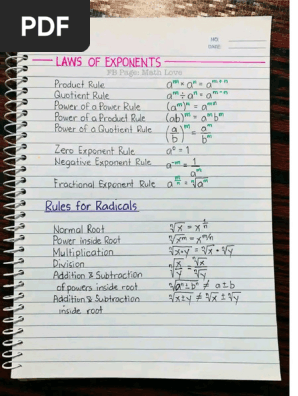 PDF
DATE
LAWS OF EXPONENTS
FB Page: Math Love
Product Rule aᵐ • aⁿ = aᵐ⁺ⁿ
Quotient Rule aᵐ ÷ aⁿ = aᵐ⁻ⁿ
Power of a Power Rule (aᵐ)ⁿ = aᵐⁿ
Power of a Product Rule (ab)ᵐ = aᵐbᵐ
Power of a Quotient Rule (a/b)ᵐ = aᵐ/bᵐ
Zero Exponent Rule a⁰ = 1
Negative Exponent Rule a⁻ᵐ = 1/aᵐ
Fractional Exponent Rule a^(m/n) = ⁿ√aᵐ
Rules for Radicals
Normal Root ⁿ√x = x^(1/n)
Power Inside Root ⁿ√xᵐ = x^(m/n)
Multiplication ⁿ√x•y = ⁿ√x • ⁿ√y
Division ⁿ√(x/y) = ⁿ√x/ⁿ√y
Addition & Subtraction
of powers inside root ⁿ√aⁿ±bⁿ ≠ a±b
Addition & Subtraction ⁿ√x±y ≠ ⁿ√x ± ⁿ√y
inside root